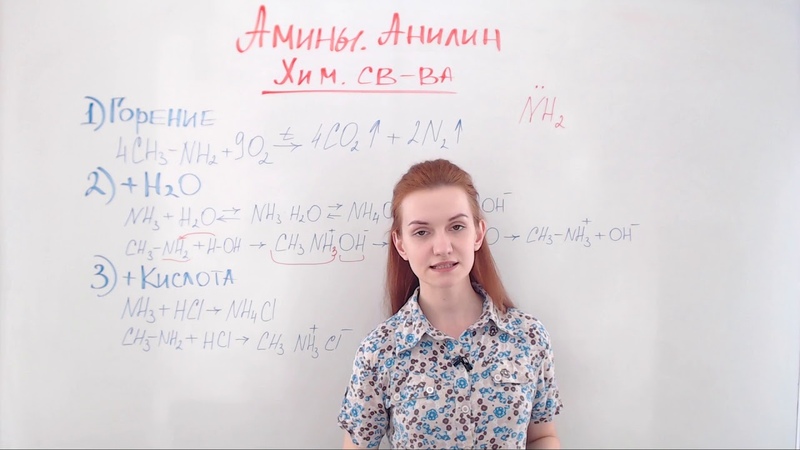 Амины. Анилин
Хим. св-ва
N̈H₂
1) Горение
4CH₃-NH₂ + 9O₂ →ᵗ 4CO₂↑ + 2N₂↑
2) + H₂O
NH₃ + H₂O ⇄ NH₃ H₂O ⇄ NH₄O OH⁻
CH₃-NH₂ + H-OH → CH₃ NH₃⁺ OH⁻ → O → CH₃-NH₃⁺ + OH⁻
3) + Кислота
NH₃ + HCl → NH₄Cl
CH₃-NH₂ + HCl → CH₃ NH₃⁺ Cl⁻